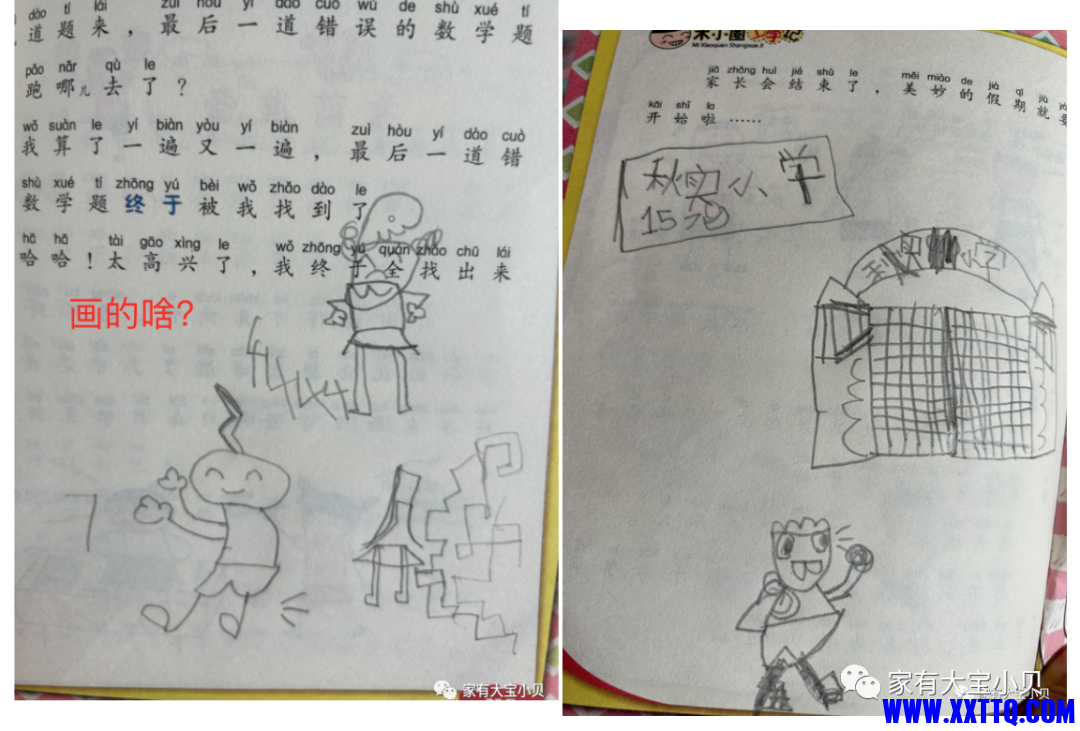 dào tí lái zuì hòu yí dào cuò wù de shù xué tí
道题来，最后一道错误的数学题
pǎo nǎr qù le
跑哪儿去了？
wǒ suàn le yí biàn yòu yí biàn zuì hòu yí dào cuò
我算了一遍又一遍，最后一道错
shù xué tí zhōng yú bèi wǒ zhǎo dào le
数学题终于被我找到了
hā hā tài gāo xìng le wǒ zhōng yú quán zhǎo chū lái
哈哈！太高兴了，我终于全找出来
画的啥?
家有大宝小贝
米小圈上学记
Mi Xiaoquan Shangxue Ji
jiā zhǎng huì jié shù le měi miào de jià qī jiù yào
家长会结束了，美妙的假期就要
kāi shǐ la
开始啦……
秋实小学
小学
家有大宝小贝
WWW.XXTTQ.COM